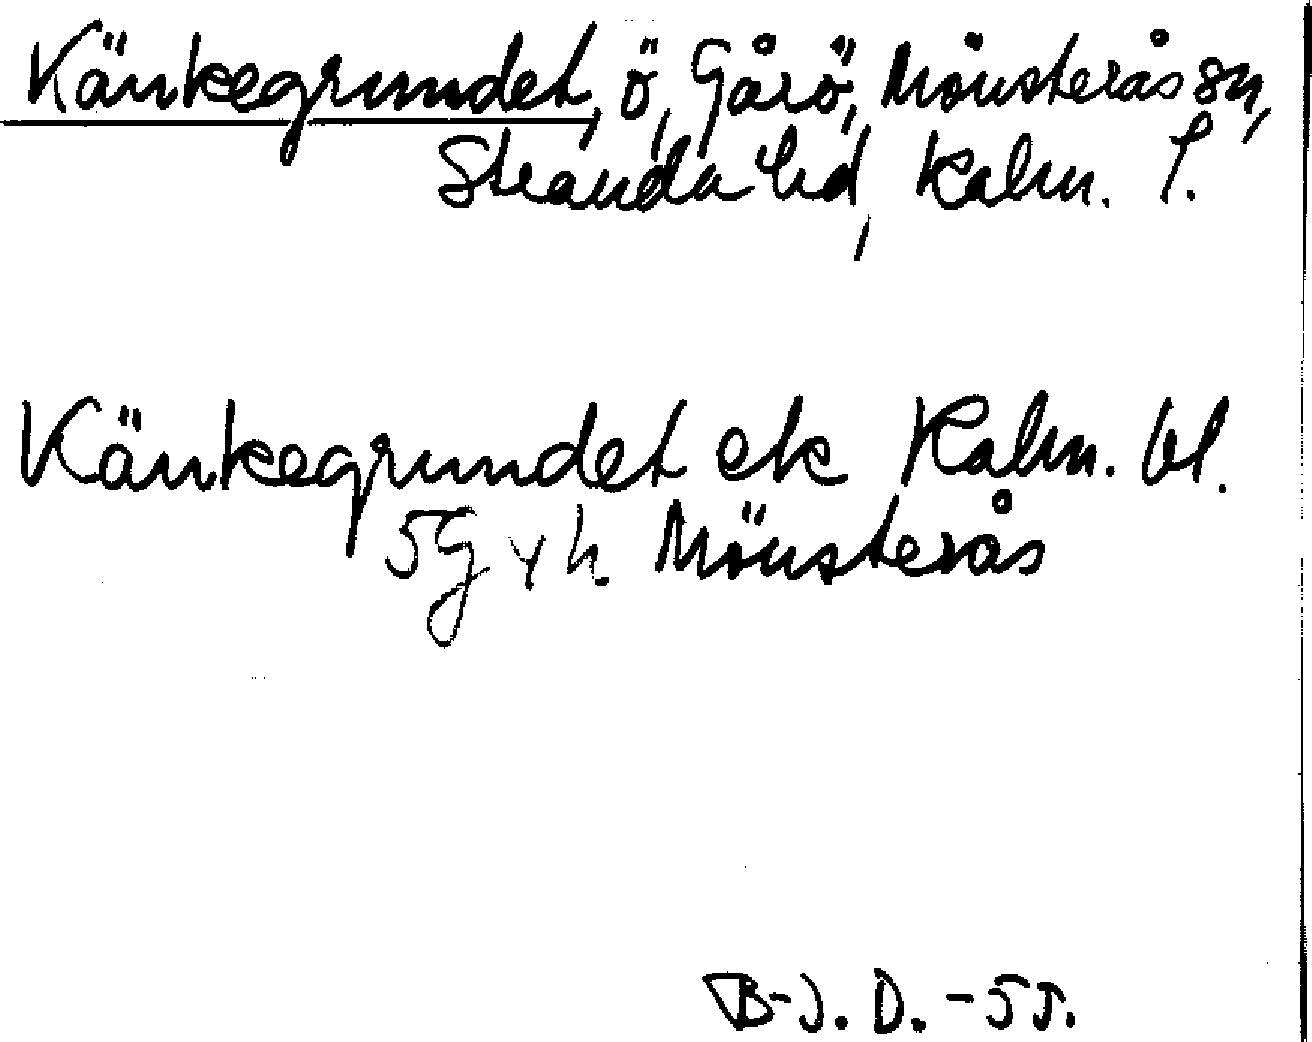 Känkegrundet, ö, Gårö, Mönsterås sn,
Stranda hd, Kalm. l.
Känkegrundet ek Kalm. bl.
5G v h. Mönsterås
B-J. D. -55.